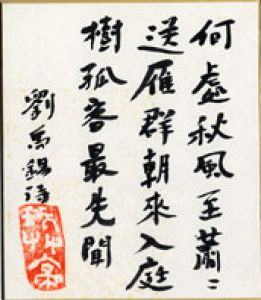 何處秋風至蕭〻
送雁群朝來入庭
樹孤客最先聞
劉禹錫詩